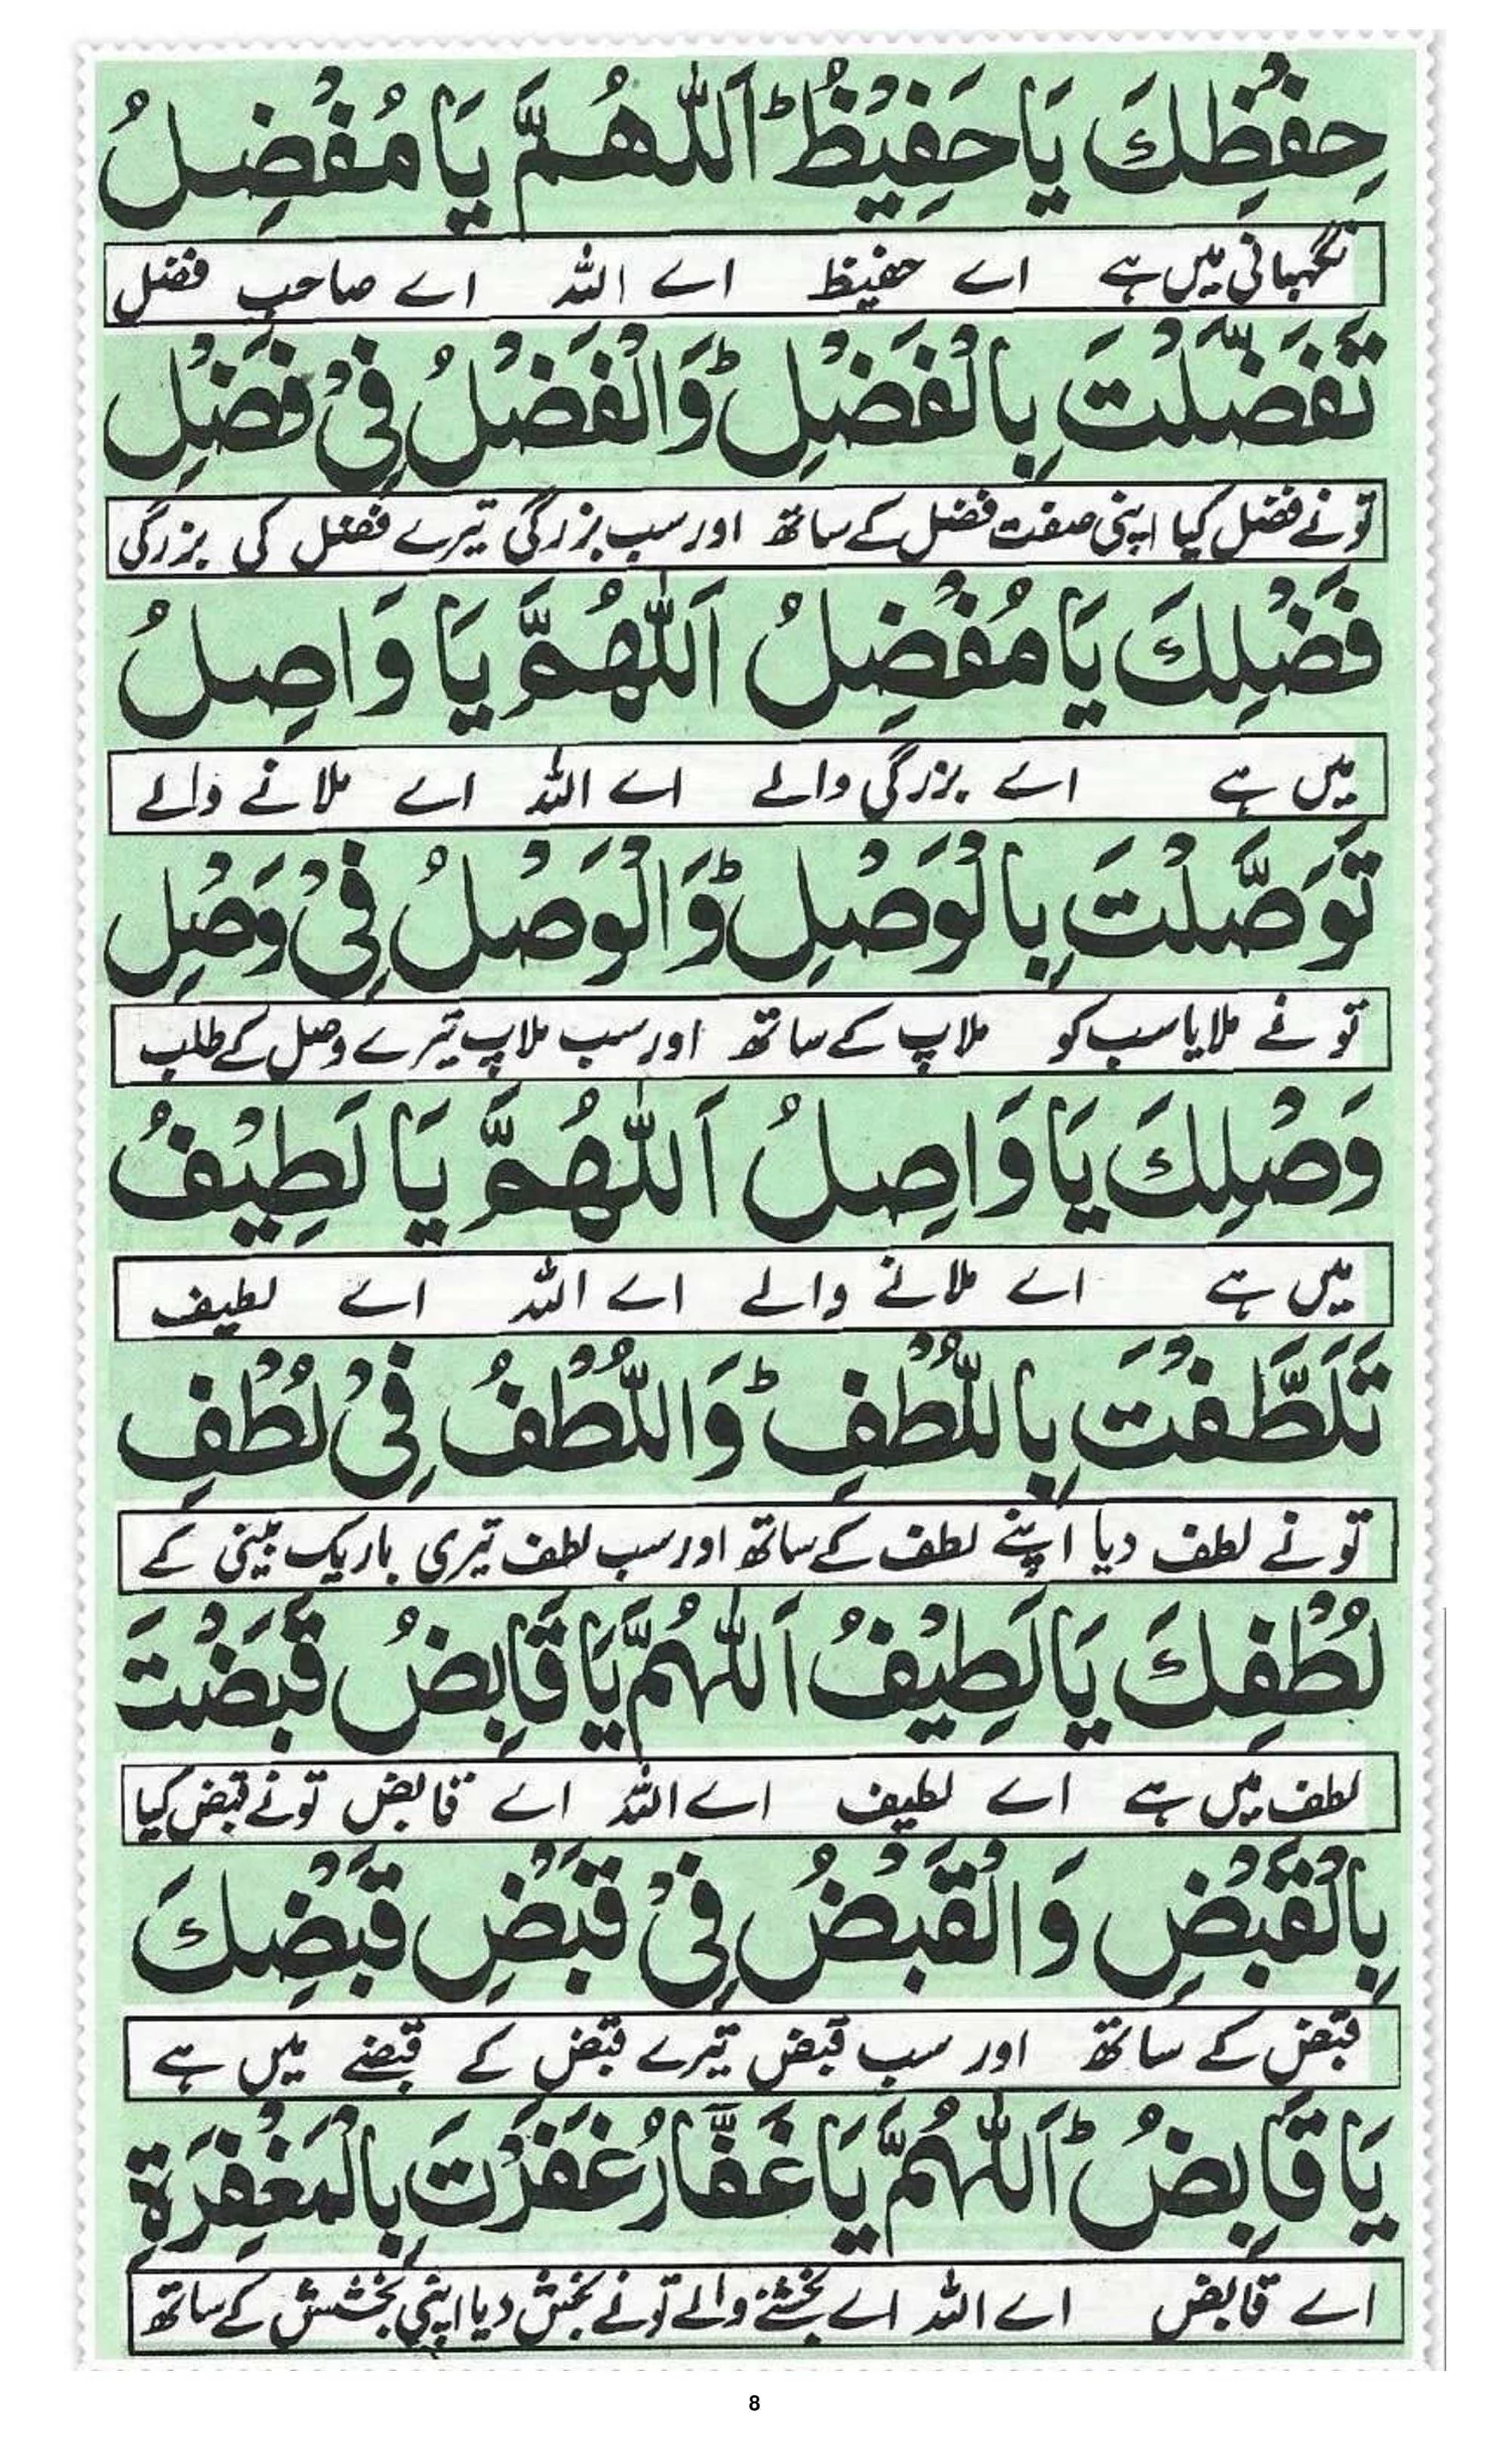 حِفْظِكَ يَا حَفِيْظُ ؕ اَللّٰهُمَّ يَا مُفْضِلُ
نگہبانی میں ہے اے حفیظ اے اللہ اے صاحب فضل
تَفَضَّلْتَ بِالْفَضْلِ ؕ وَالْفَضْلُ فِیْ فَضْلِ
تو نے فضل کیا اپنی صفت فضل کے ساتھ اور سب بزرگی تیرے فضل کی بزرگی
فَضْلِكَ يَا مُفْضِلُ اَللّٰهُمَّ يَا وَاصِلُ
میں ہے اے بزرگی والے اے اللہ اے ملانے والے
تَوَصَّلْتَ بِالْوَصْلِ ؕ وَالْوَصْلُ فِیْ وَصْلِ
تو نے ملایا سب کو ملاپ کے ساتھ اور سب ملاپ تیرے وصل کے طلب
وَصْلِكَ يَا وَاصِلُ اَللّٰهُمَّ يَا لَطِيْفُ
میں ہے اے ملانے والے اے اللہ اے لطیف
تَلَطَّفْتَ بِاللُّطْفِ ؕ وَاللُّطْفُ فِیْ لُطْفِ
تو نے لطف دیا اپنے لطف کے ساتھ اور سب لطف تیری باریک بینی کے
لُطْفِكَ يَا لَطِيْفُ اَللّٰهُمَّ يَا قَابِضُ قَبَضْتَ
لطف میں ہے اے لطیف اے اللہ اے قابض تو نے قبض کیا
بِالْقَبْضِ وَالْقَبْضُ فِیْ قَبْضِ قَبْضِكَ
قبض کے ساتھ اور سب قبض تیرے قبض کے قبضے میں ہے
يَا قَابِضُ ؕ اَللّٰهُمَّ يَا غَفَّارُ غَفَرْتَ بِالْمَغْفِرَةِ
اے قابض اے اللہ اے بخشنے والے تو نے بخش دیا اپنی بخشش کے ساتھ
8